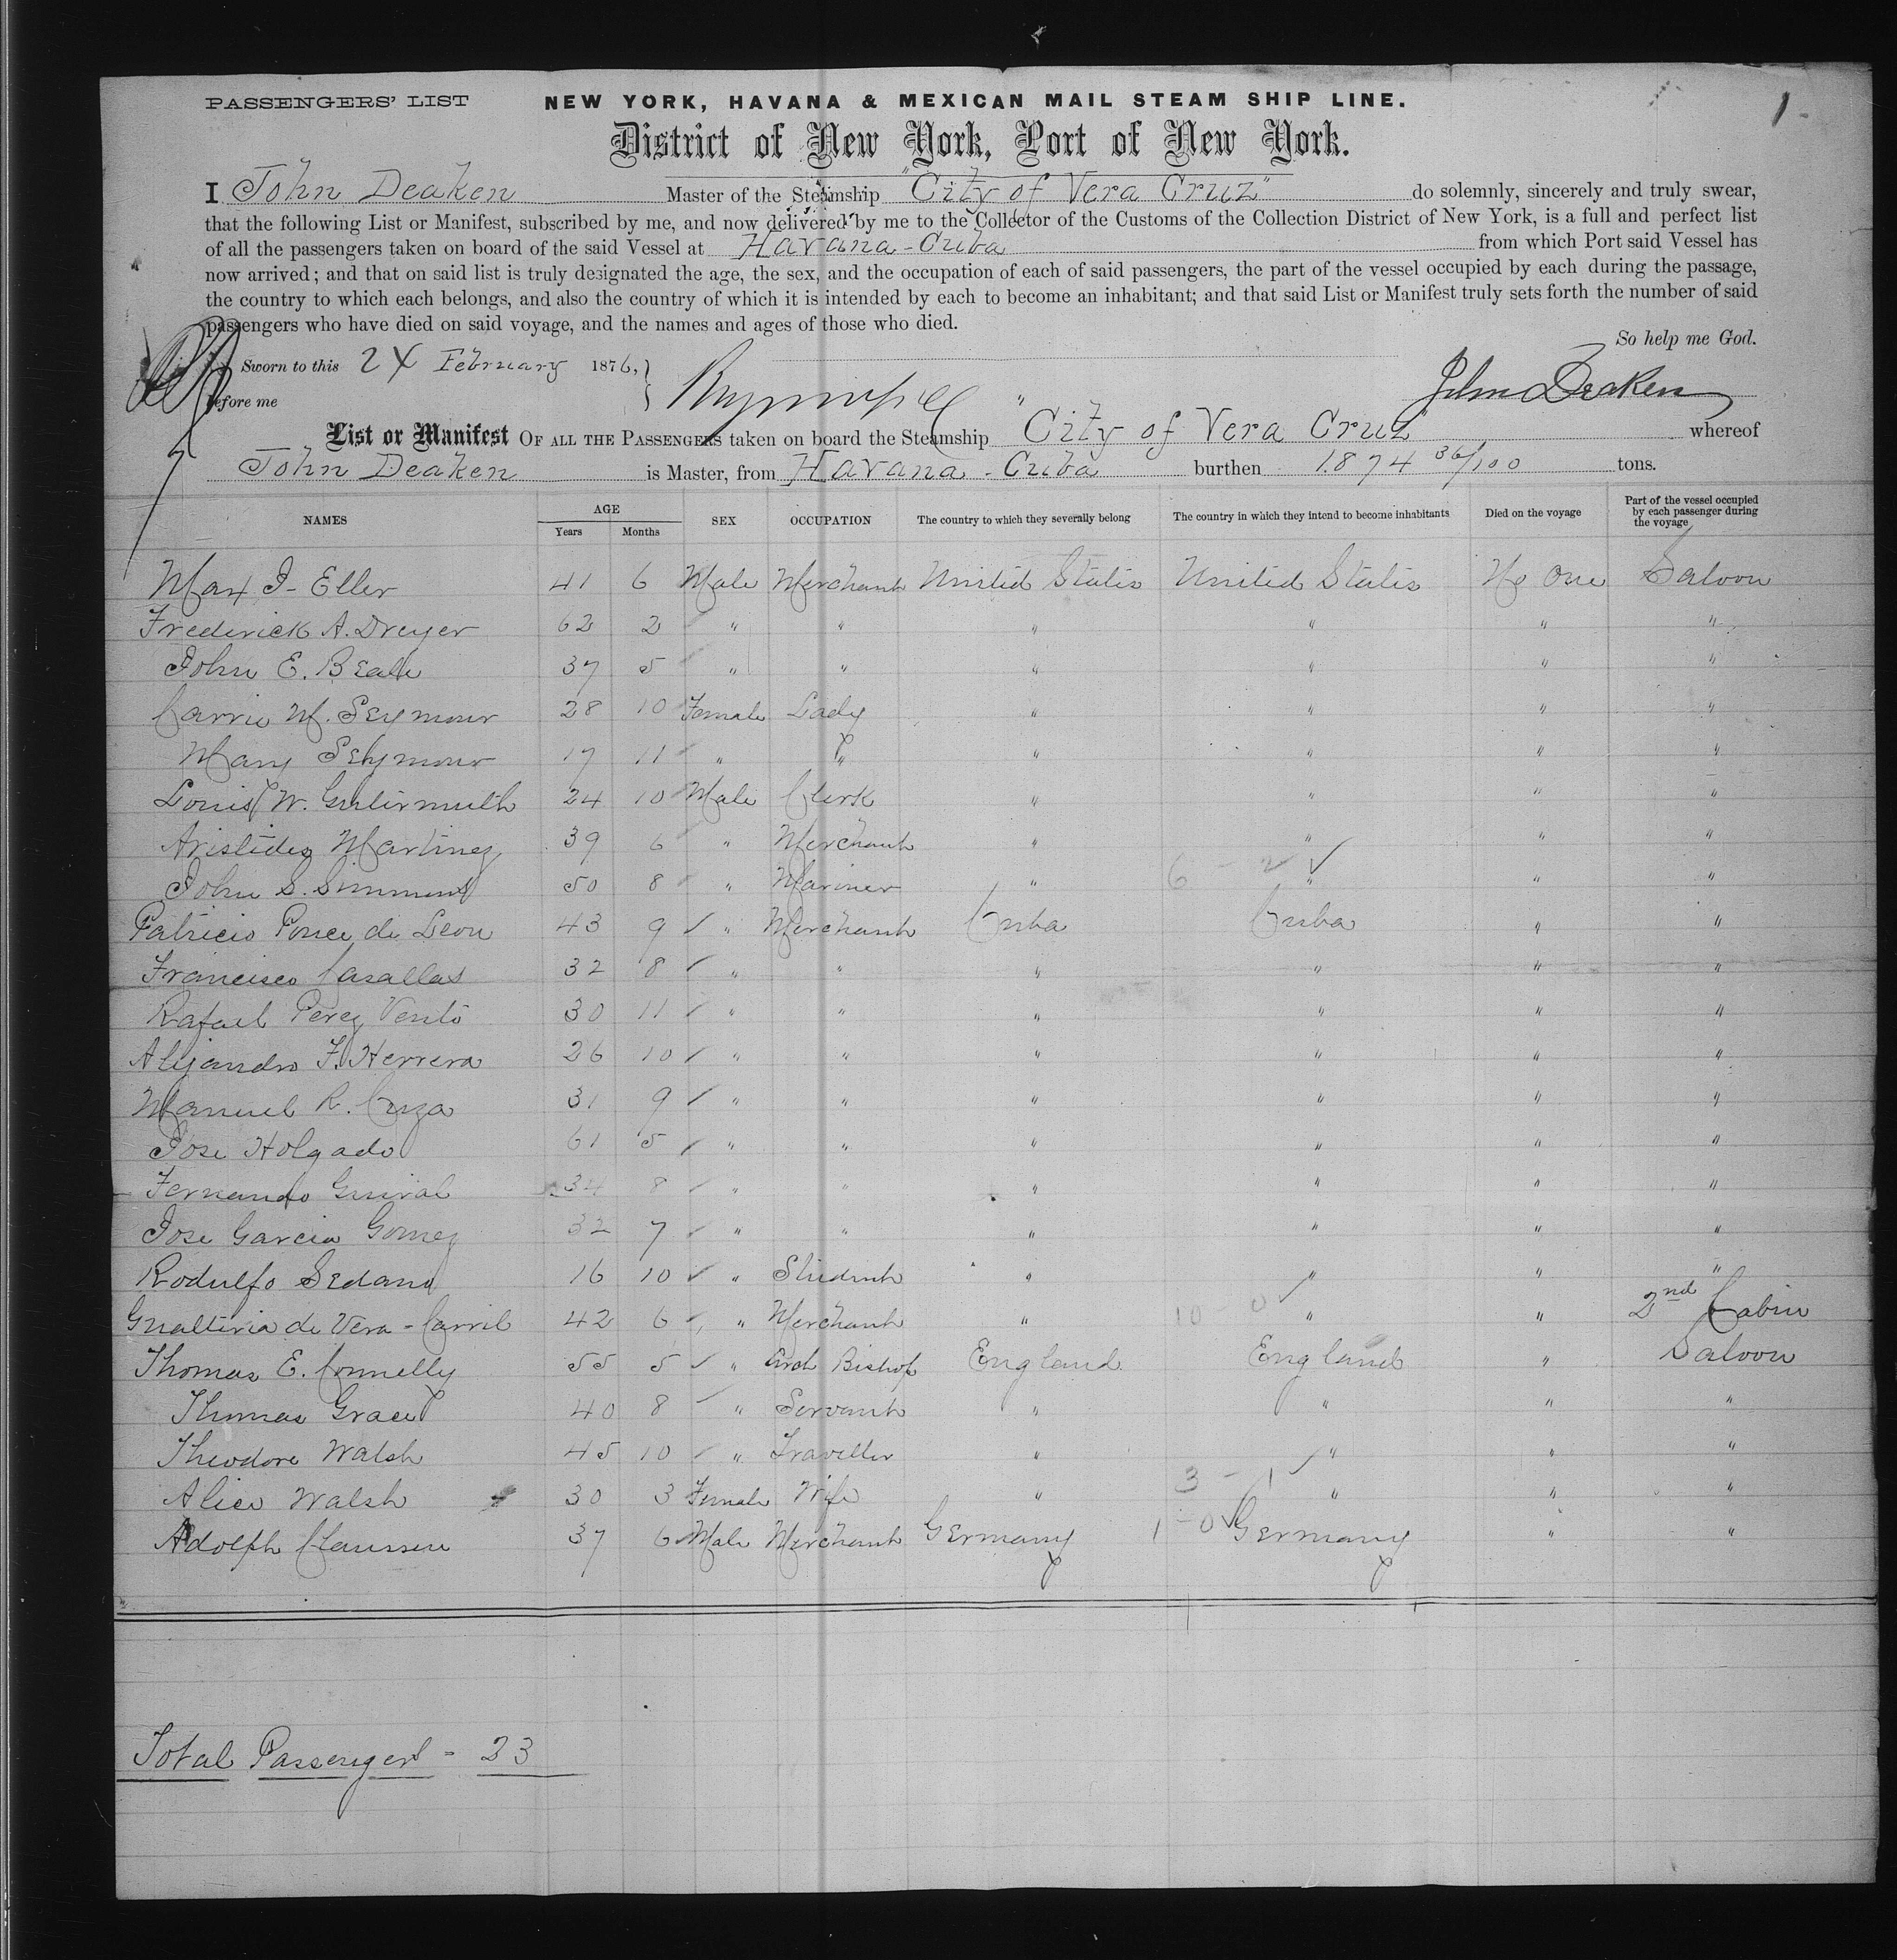 1-
PASSENGERS' LIST NEW YORK, HAVANA & MEXICAN MAIL STEAM SHIP LINE.
District of New York, Port of New York.
I John Deaken Master of the Steamship "City of Vera Cruz" do solemnly, sincerely and truly swear,
that the following List or Manifest, subscribed by me, and now delivered by me to the Collector of the Customs of the Collection District of New York, is a full and perfect list
of all the passengers taken on board of the said Vessel at Havana - Cuba from which Port said Vessel has
now arrived; and that on said list is truly designated the age, the sex, and the occupation of each of said passengers, the part of the vessel occupied by each during the passage,
the country to which each belongs, and also the country of which it is intended by each to become an inhabitant; and that said List or Manifest truly sets forth the number of said
passengers who have died on said voyage, and the names and ages of those who died.
So help me God.
Sworn to this 24 February 1876,
before me John Deaken
List or Manifest OF ALL THE PASSENGERS taken on board the Steamship "City of Vera Cruz" whereof
John Deaken is Master, from Havana - Cuba burthen 1874 36/100 tons.
NAMES AGE Years Months SEX OCCUPATION The country to which they severally belong The country in which they intend to become inhabitants Died on the voyage Part of the vessel occupied by each passenger during the voyage
Max J- Eller 41 6 Male Merchant United States United States No One Saloon
Frederick A. Dreyer 62 2 " " " " " "
John E. Beale 37 5 " " " " " "
Carrie M. Seymour 28 10 Female Lady " " " "
Mary Seymour 17 11 " " " " " "
Louis W. 24 10 Male Clerk " " " "
Aristides Martinez 39 6 " Merchant " " " "
John S. Simmons 50 8 " Mariner " 6 - 2 ✓ " " "
Patricio Ponce de Leon 43 9 ✓ " Merchant Cuba Cuba " "
Francisco Casallas 32 8 ✓ " " " " " "
Rafael Perez Vento 30 11 ✓ " " " " " "
Alejandro F. Herrera 26 10 ✓ " " " " " "
Manuel R. Cruza 31 9 ✓ " " " " " "
Jose Holgado 61 5 ✓ " " " " " "
Fernando Guiral 34 8 ✓ " " " " " "
Jose Garcia Gomez 32 7 ✓ " " " " " "
Rodulfo Sedano 16 10 ✓ " Student " " " "
Gualterio de Vera - Carril 42 6 ✓ " Merchant " 10 - 0 ✓ " " 2nd Cabin
Thomas E. Connelly 55 5 ✓ " Arch Bishop England England " Saloon
Thomas Grace 40 8 ✓ " Servant " " " "
Theodore Walsh 45 10 ✓ " Traveller " " " "
Alice Walsh 30 3 Female Wife " 3 - 1 ✓ " " "
Adolph Claussen 37 6 Male Merchant Germany 1 - 0 ✓ Germany " "
Total Passengers - 23